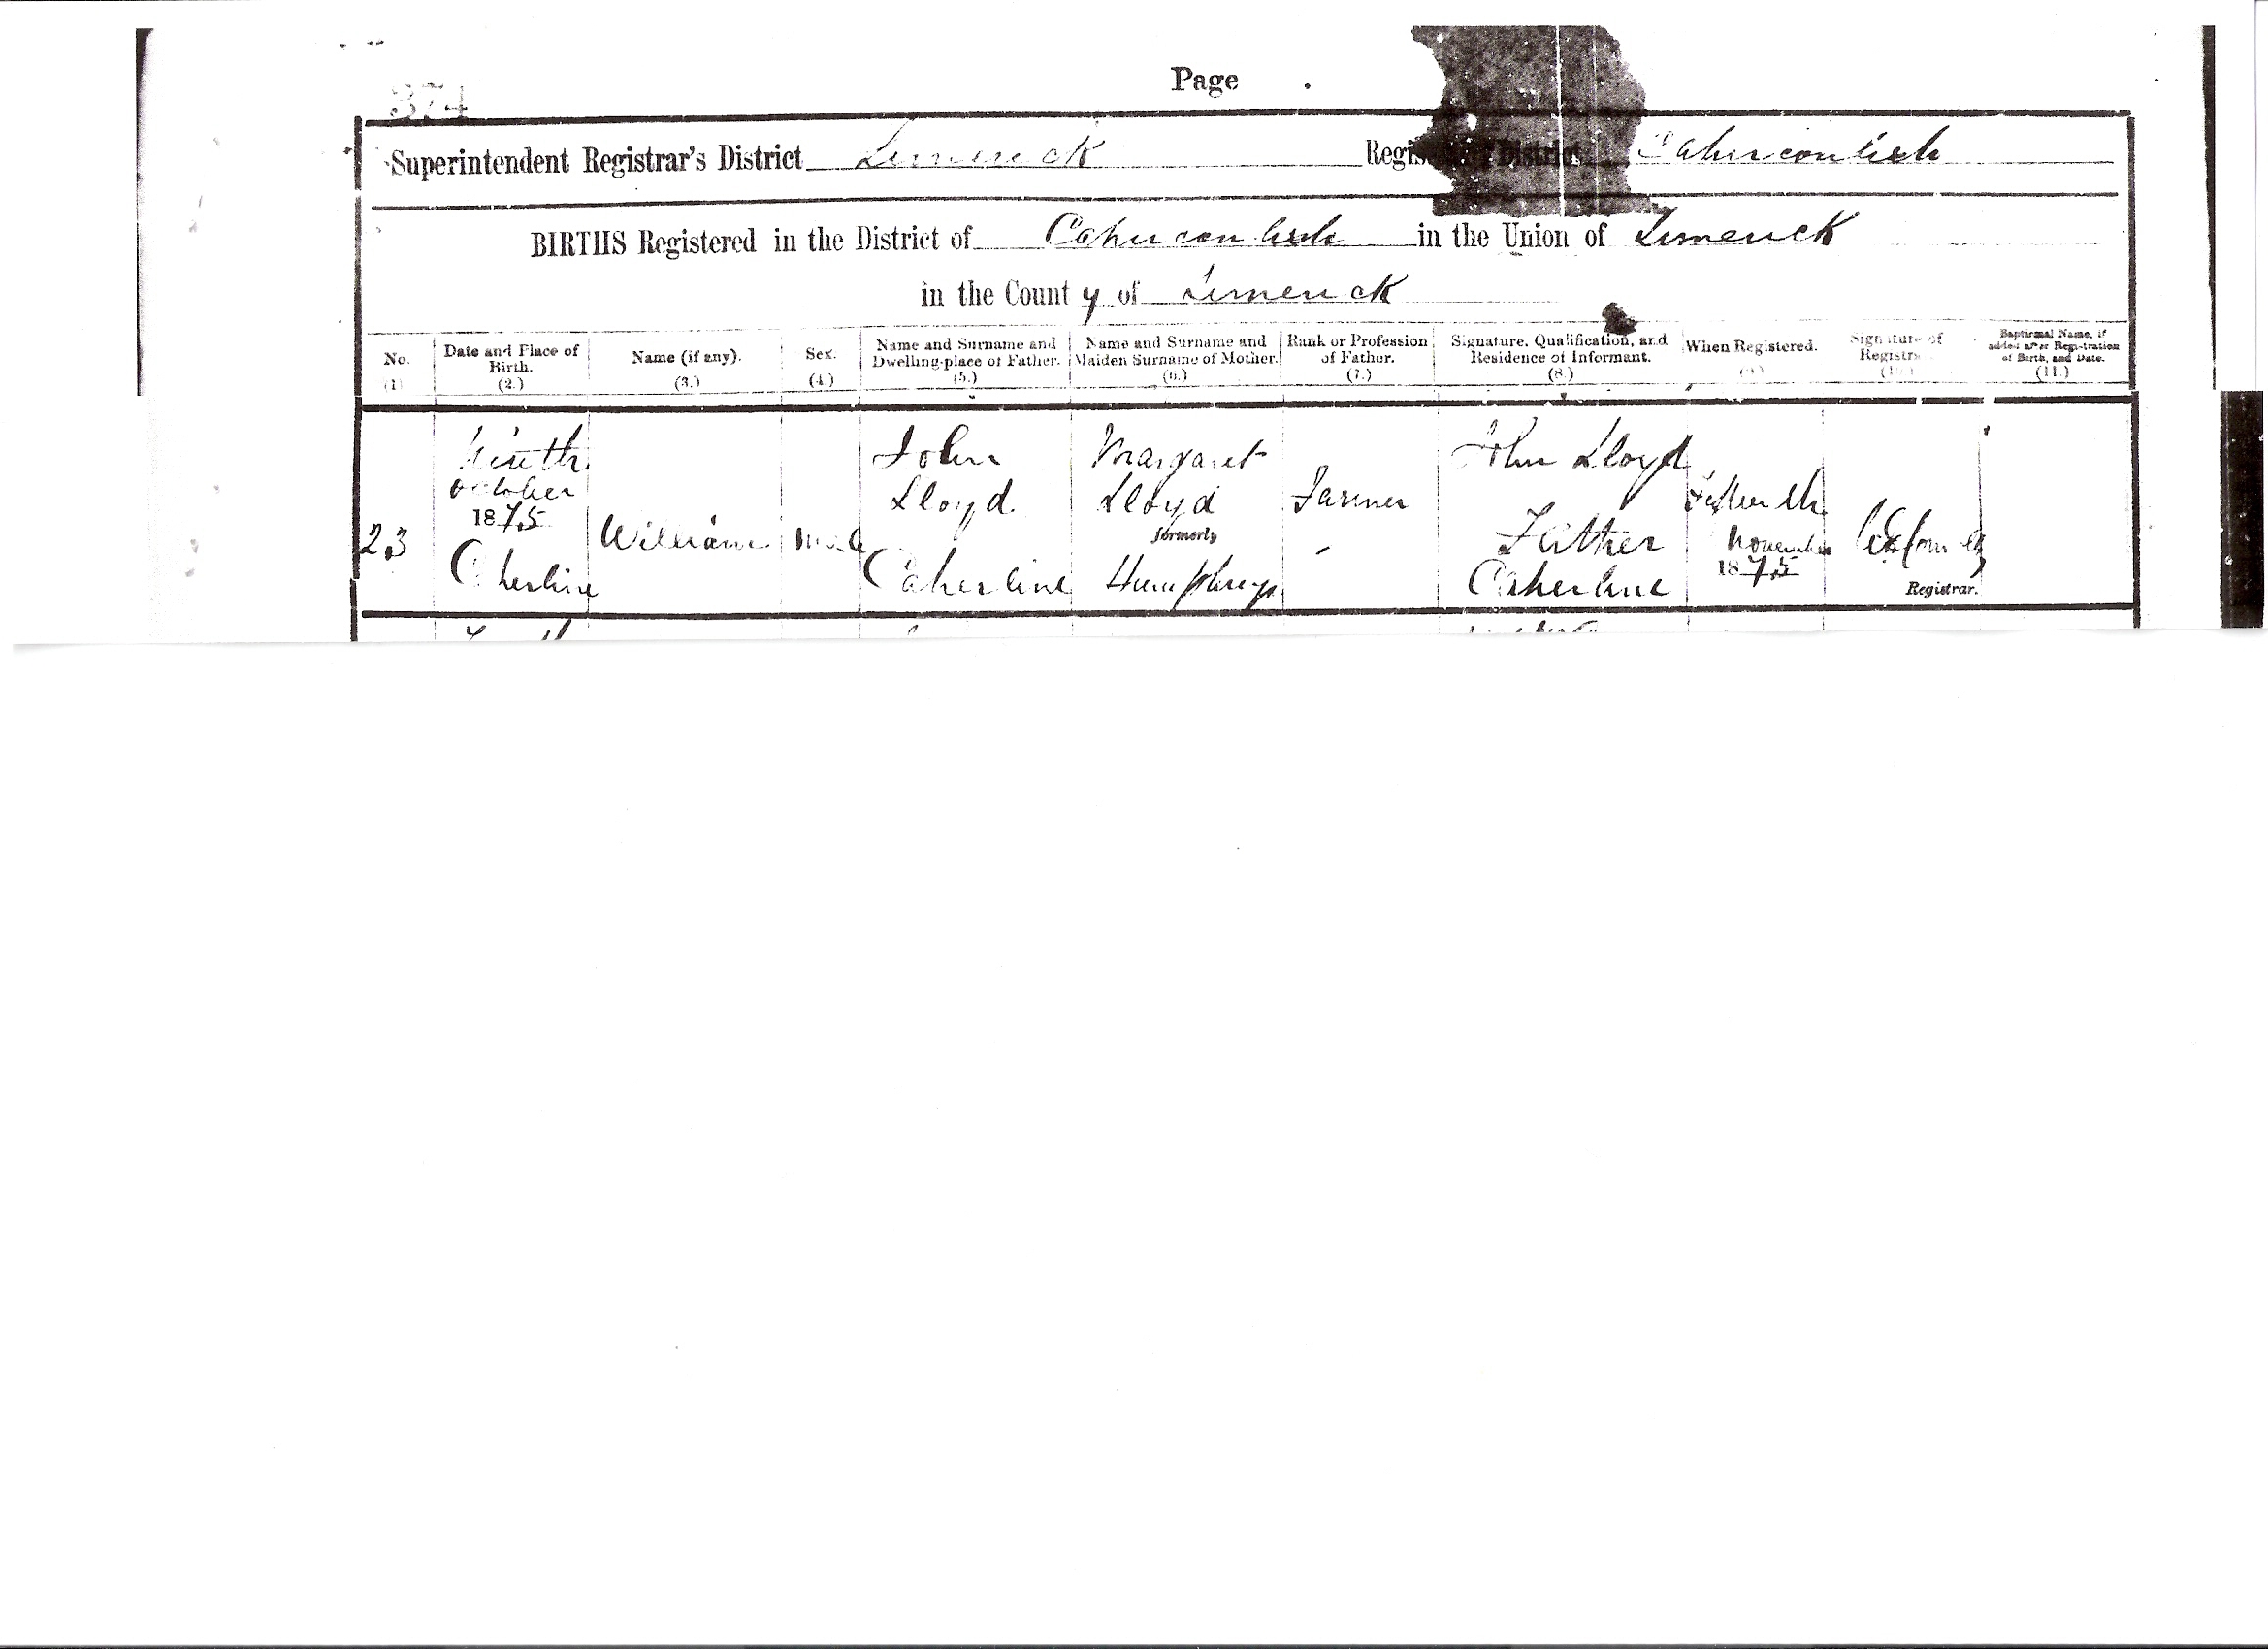 Page
374
Superintendent Registrar's District Limerick Regis District Cahirconlish
BIRTHS Registered in the District of Cahirconlish in the Union of Limerick
in the County of Limerick
No. (1)
Date and Place of Birth. (2.)
Name (if any). (3.)
Sex. (4.)
Name and Surname and Dwelling-place of Father. (5.)
Name and Surname and Maiden Surname of Mother. (6.)
Rank or Profession of Father. (7.)
Signature, Qualification, and Residence of Informant. (8.)
When Registered. (9.)
Signature of Registrar (10.)
Baptismal Name, if added after Registration of Birth, and Date. (11.)
23
Ninth
October
1875
Caherline
William
Male
John
Lloyd
Caherline
Margaret
Lloyd
formerly
Humphreys
Farmer
John Lloyd
Father
Caherline
Fifteenth
November
1875
Registrar.